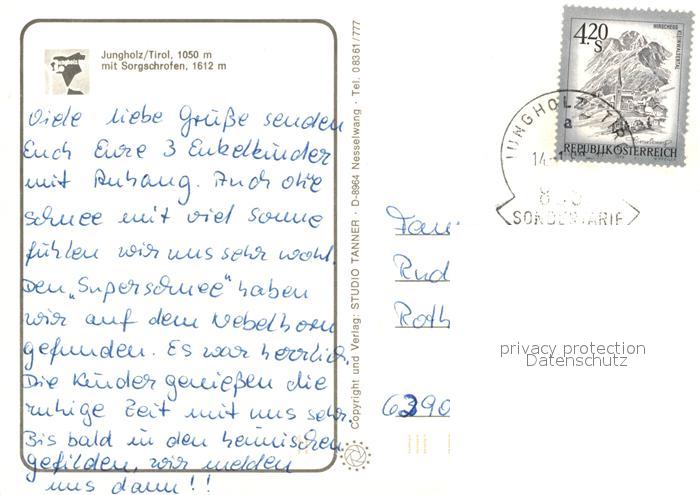 Jungholz/Tirol, 1050 m
mit Sorgschrofen, 1612 m
Viele liebe Grüße senden
Euch Eure 3 Enkelkinder
mit Anhang. Auch ohne
schnee mit viel Sonne
fühlen wir uns sehr wohl.
Den „Superschnee" haben
wir auf dem Nebelhorn
gefunden. Es war herrlich.
Die Kinder genießen die
ruhige Zeit mit uns sehr.
Bis bald in den heimischen
gefilden, wir melden
uns dann!!
Copyright und Verlag: STUDIO TANNER · D-8964 Nesselwang · Tel. 08361/777
HIRSCHEGG
KLEINWALSERTAL
4.20
S
REPUBLIK ÖSTERREICH
JUNGHOLZ
a
14
SONDERTARIF
Fam
Rud
Roth
6390
privacy protection
Datenschutz